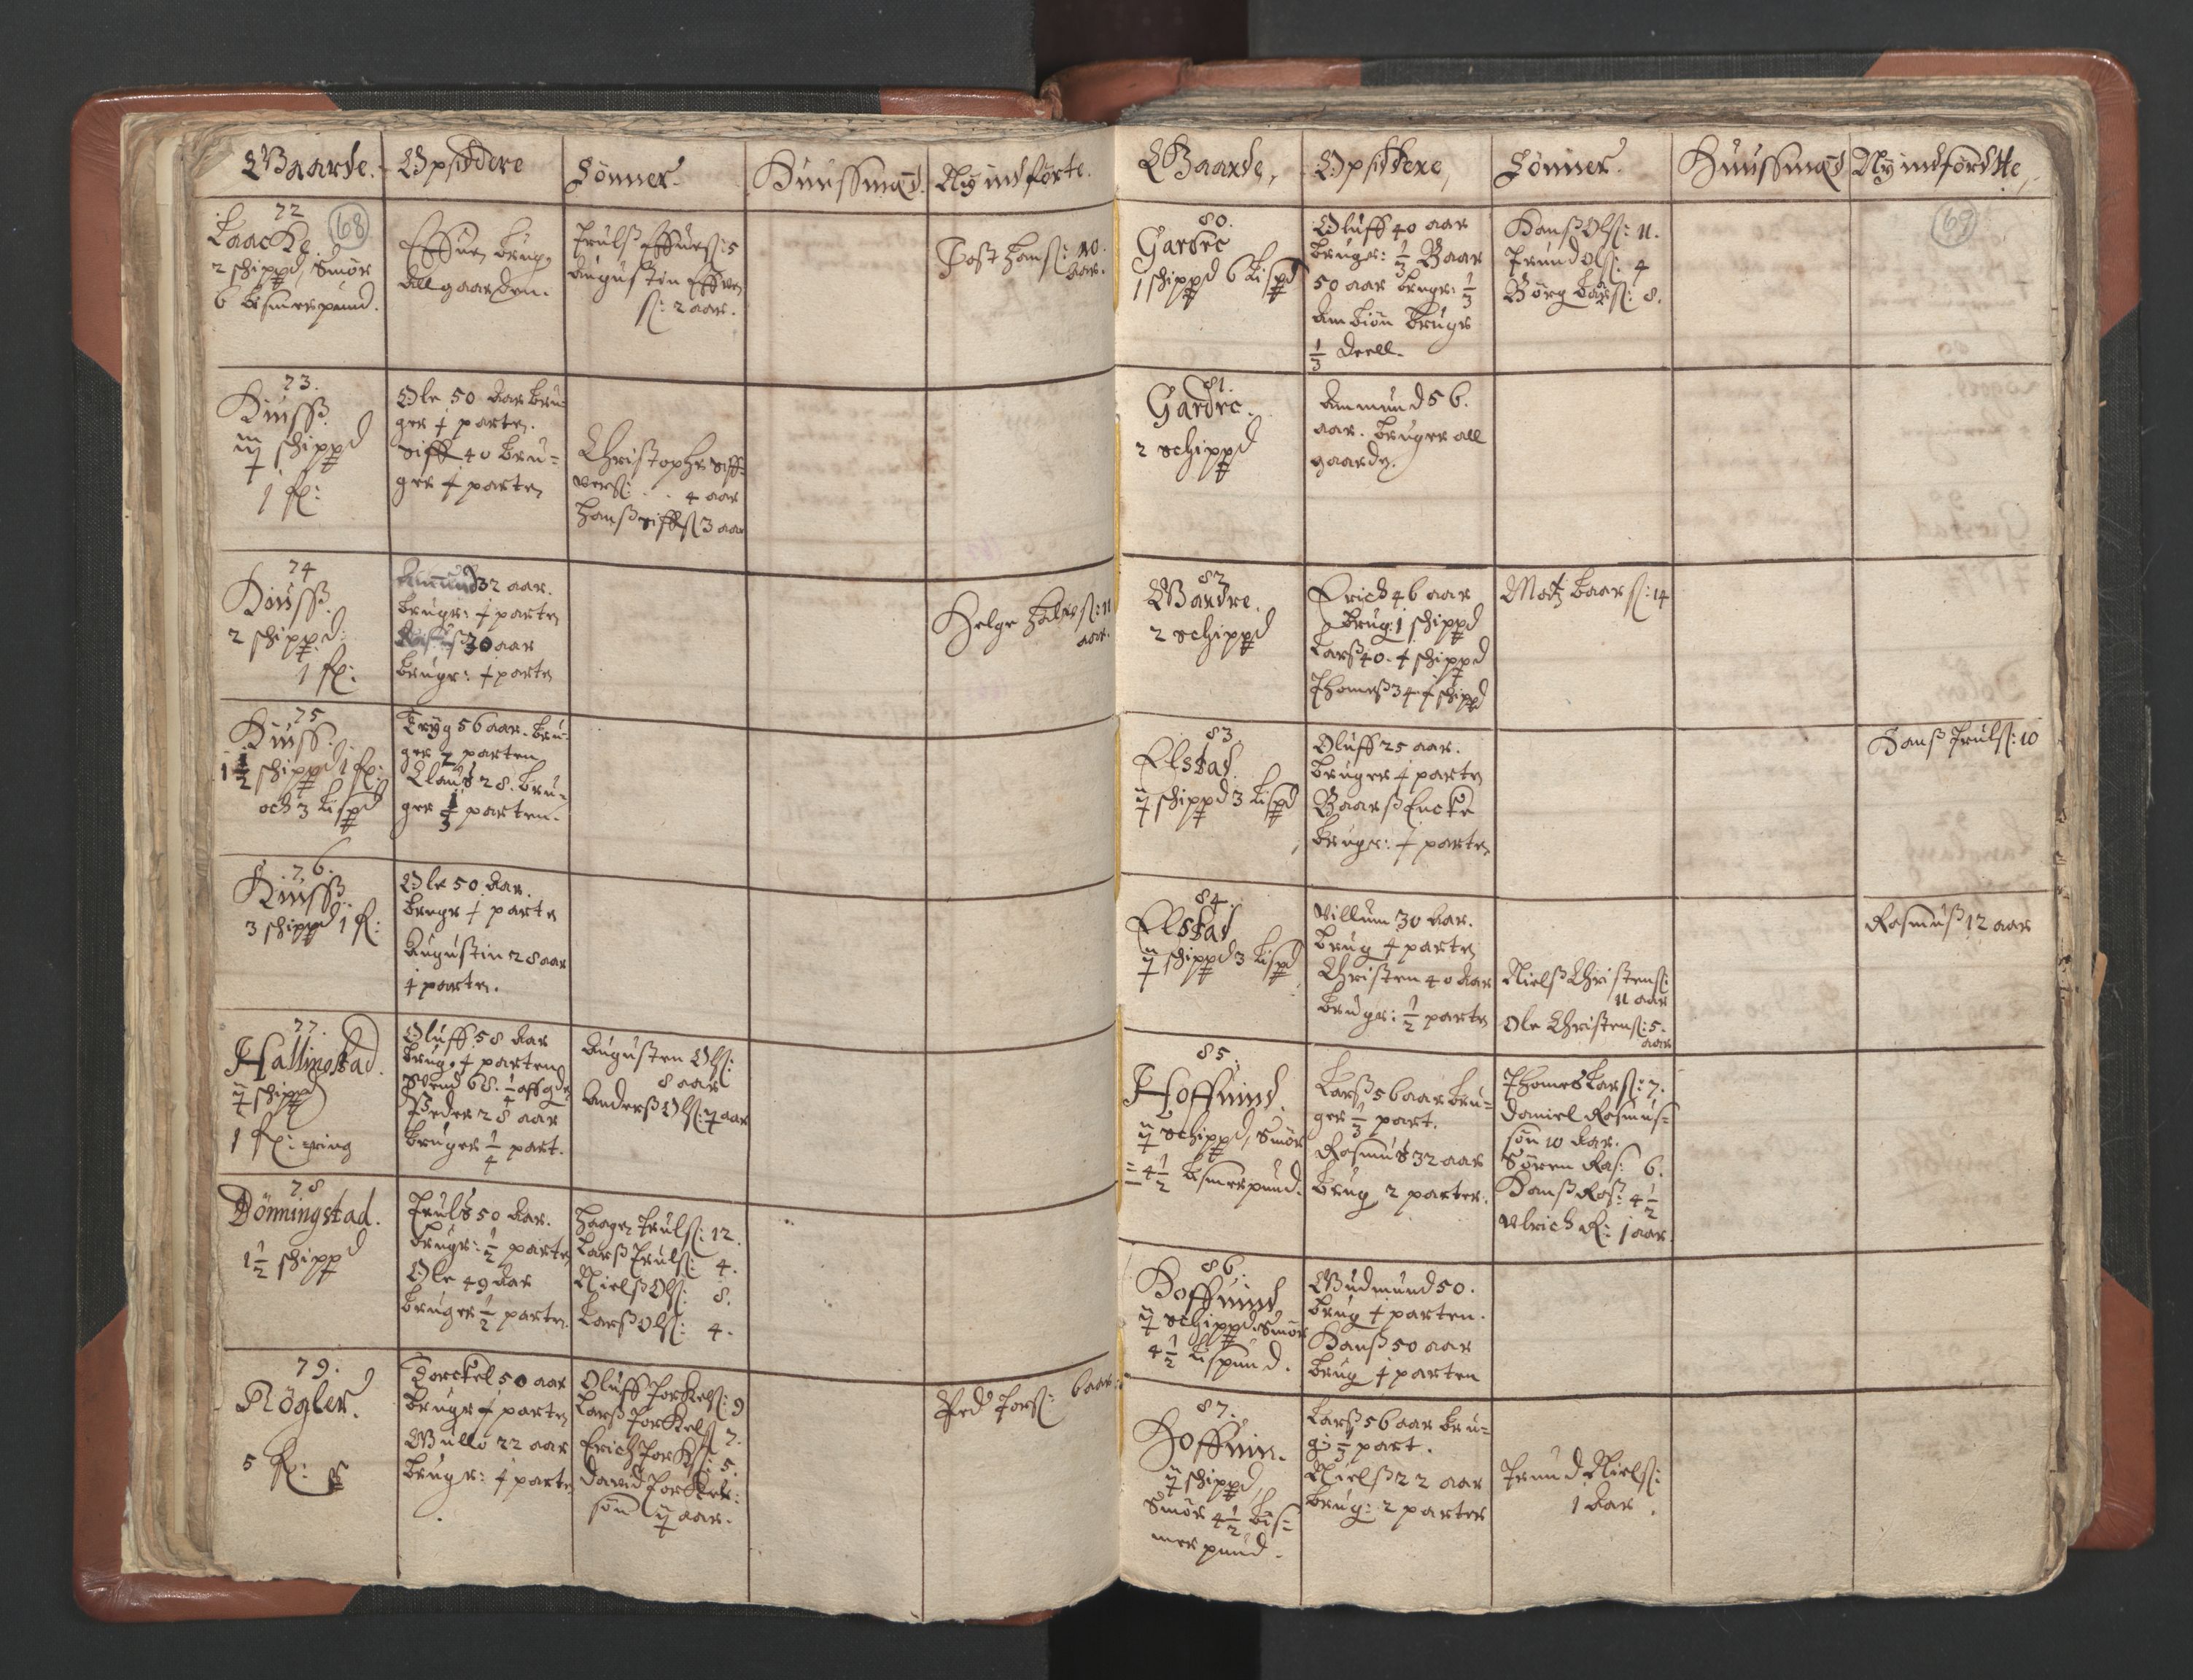 Gaarde.
Opsiddere
Sönner.
Huussmæd.
Ny indförte.
72
68
Laache.
2 schippd, Smör
6 bismerpund.
Effuen brug:
all gaarden.
Truls Effuens: 5
Augustin Effuen
s: 2 aar.
Jost Hans: 10.
aar.
73.
Kiuss.
schippd
1 fl:
Ole 50 aar bru-
ger ½ parten.
Siff 40 bru-
ger ½ parten
Christopher Siff-
vers: . . 4 aar
Hans Siffs 3 aar
74
Kiuss.
2 schippd:
1 fl:
Amund 32 aar.
bruger: ½ parten
30 aar
bruger: ½ parten
Helge s: 11
aar.
75
Kiuss.
1½ schippd 1 fl:
och 3 Lispd
Tryg 56 aar. bru-
ger 2 parten
Claus 28. bru-
ger ⅓ parten.
76.
Kiuss.
3 schippd 1 fl:
Ole 50 aar.
bruger ½ parten
Augustin 28 aar
½ parten.
77.
Hallingstad.
schippd
1 fl:
Oluff 58 aar
brug: ½ parten
Svend 68. ¼ aff gdn
Peder 28 aar
bruger ¼ part.
Augusten Ols:
8 aar
Anders Ols: aar
78
Dönningstad.
1½ schippd
Truls 50 aar.
bruger: ½ parten
Ole 49 aar
bruger ½ parten.
Haagen Truls: 12.
Lars Truls: 4.
Niels Ols: 8.
Lars Ols: 4.
79.
Rögler.
5 fl:
Torckel 50 aar
bruger ½ parten
Gullo 22 aar
bruger: ½ parten
Oluff Torkels: 9
Lars Torkels 7.
Erich Tork: 5.
David Torkels:
sön aar.
Ped Tors: 6 aar.
Gaarde,
Opsiddere,
Sönner.
Huussmæd
Ny indfördtte,
80.
69
Gardre
1 schippd 6 Lispd
Oluff 40 aar
bruger: ⅓ Baar
50 aar bruger: ⅓
Ambiön bruger
⅓ deell.
Hans Ols: 11.
Trund Ols: 4
Börg Baars: 8.
81.
Gardre.
2 schippd
Ammund 56.
aar. bruger all
gaarden.
82.
Gardre.
2 schippd
Erich 46 aar
brug: 1 schippd
Lars 40. ½ schippd
Thomes 34 ½ schippd
Matz Baars: 14
83
Elstad.
schippd 3 Lispd
Oluff 25 aar.
bruger ½ parten
Baars Encke
bruger: ½ parten
Hans Truls: 10
84.
Elstad
schippd 3 Lispd
Villum 30 aar.
brug ½ parten
Christen 40 aar
bruger: ½ parten
Niels Christens:
11 aar
Ole Christens: 5.
aar
Rasmus 12 aar
85.
Hoffuind.
schippd, Smör
4½ bismerpund.
Lars 56 aar bru-
ger ⅓ part.
Rasmus 32 aar
brug 2 parter.
Thomes Lars: 7.
Daniel Rasmus-
sön 10 aar.
Sören Ras: 6.
Hans Ras: 4½
Ulrich R: 1 aar
86.
Hoffuind
schippd. Smör
4½ Lispund.
Gudmund 50.
brug ½ parten.
Hans 50 aar
brug ½ parten
87.
Hoffuin.
schippd,
Smör 4½ bis-
mer pund.
Lars 56 aar bru-
ger ⅓ part.
Niels 22 aar
brug: 2 parter
Trund Niels:
1 aar.